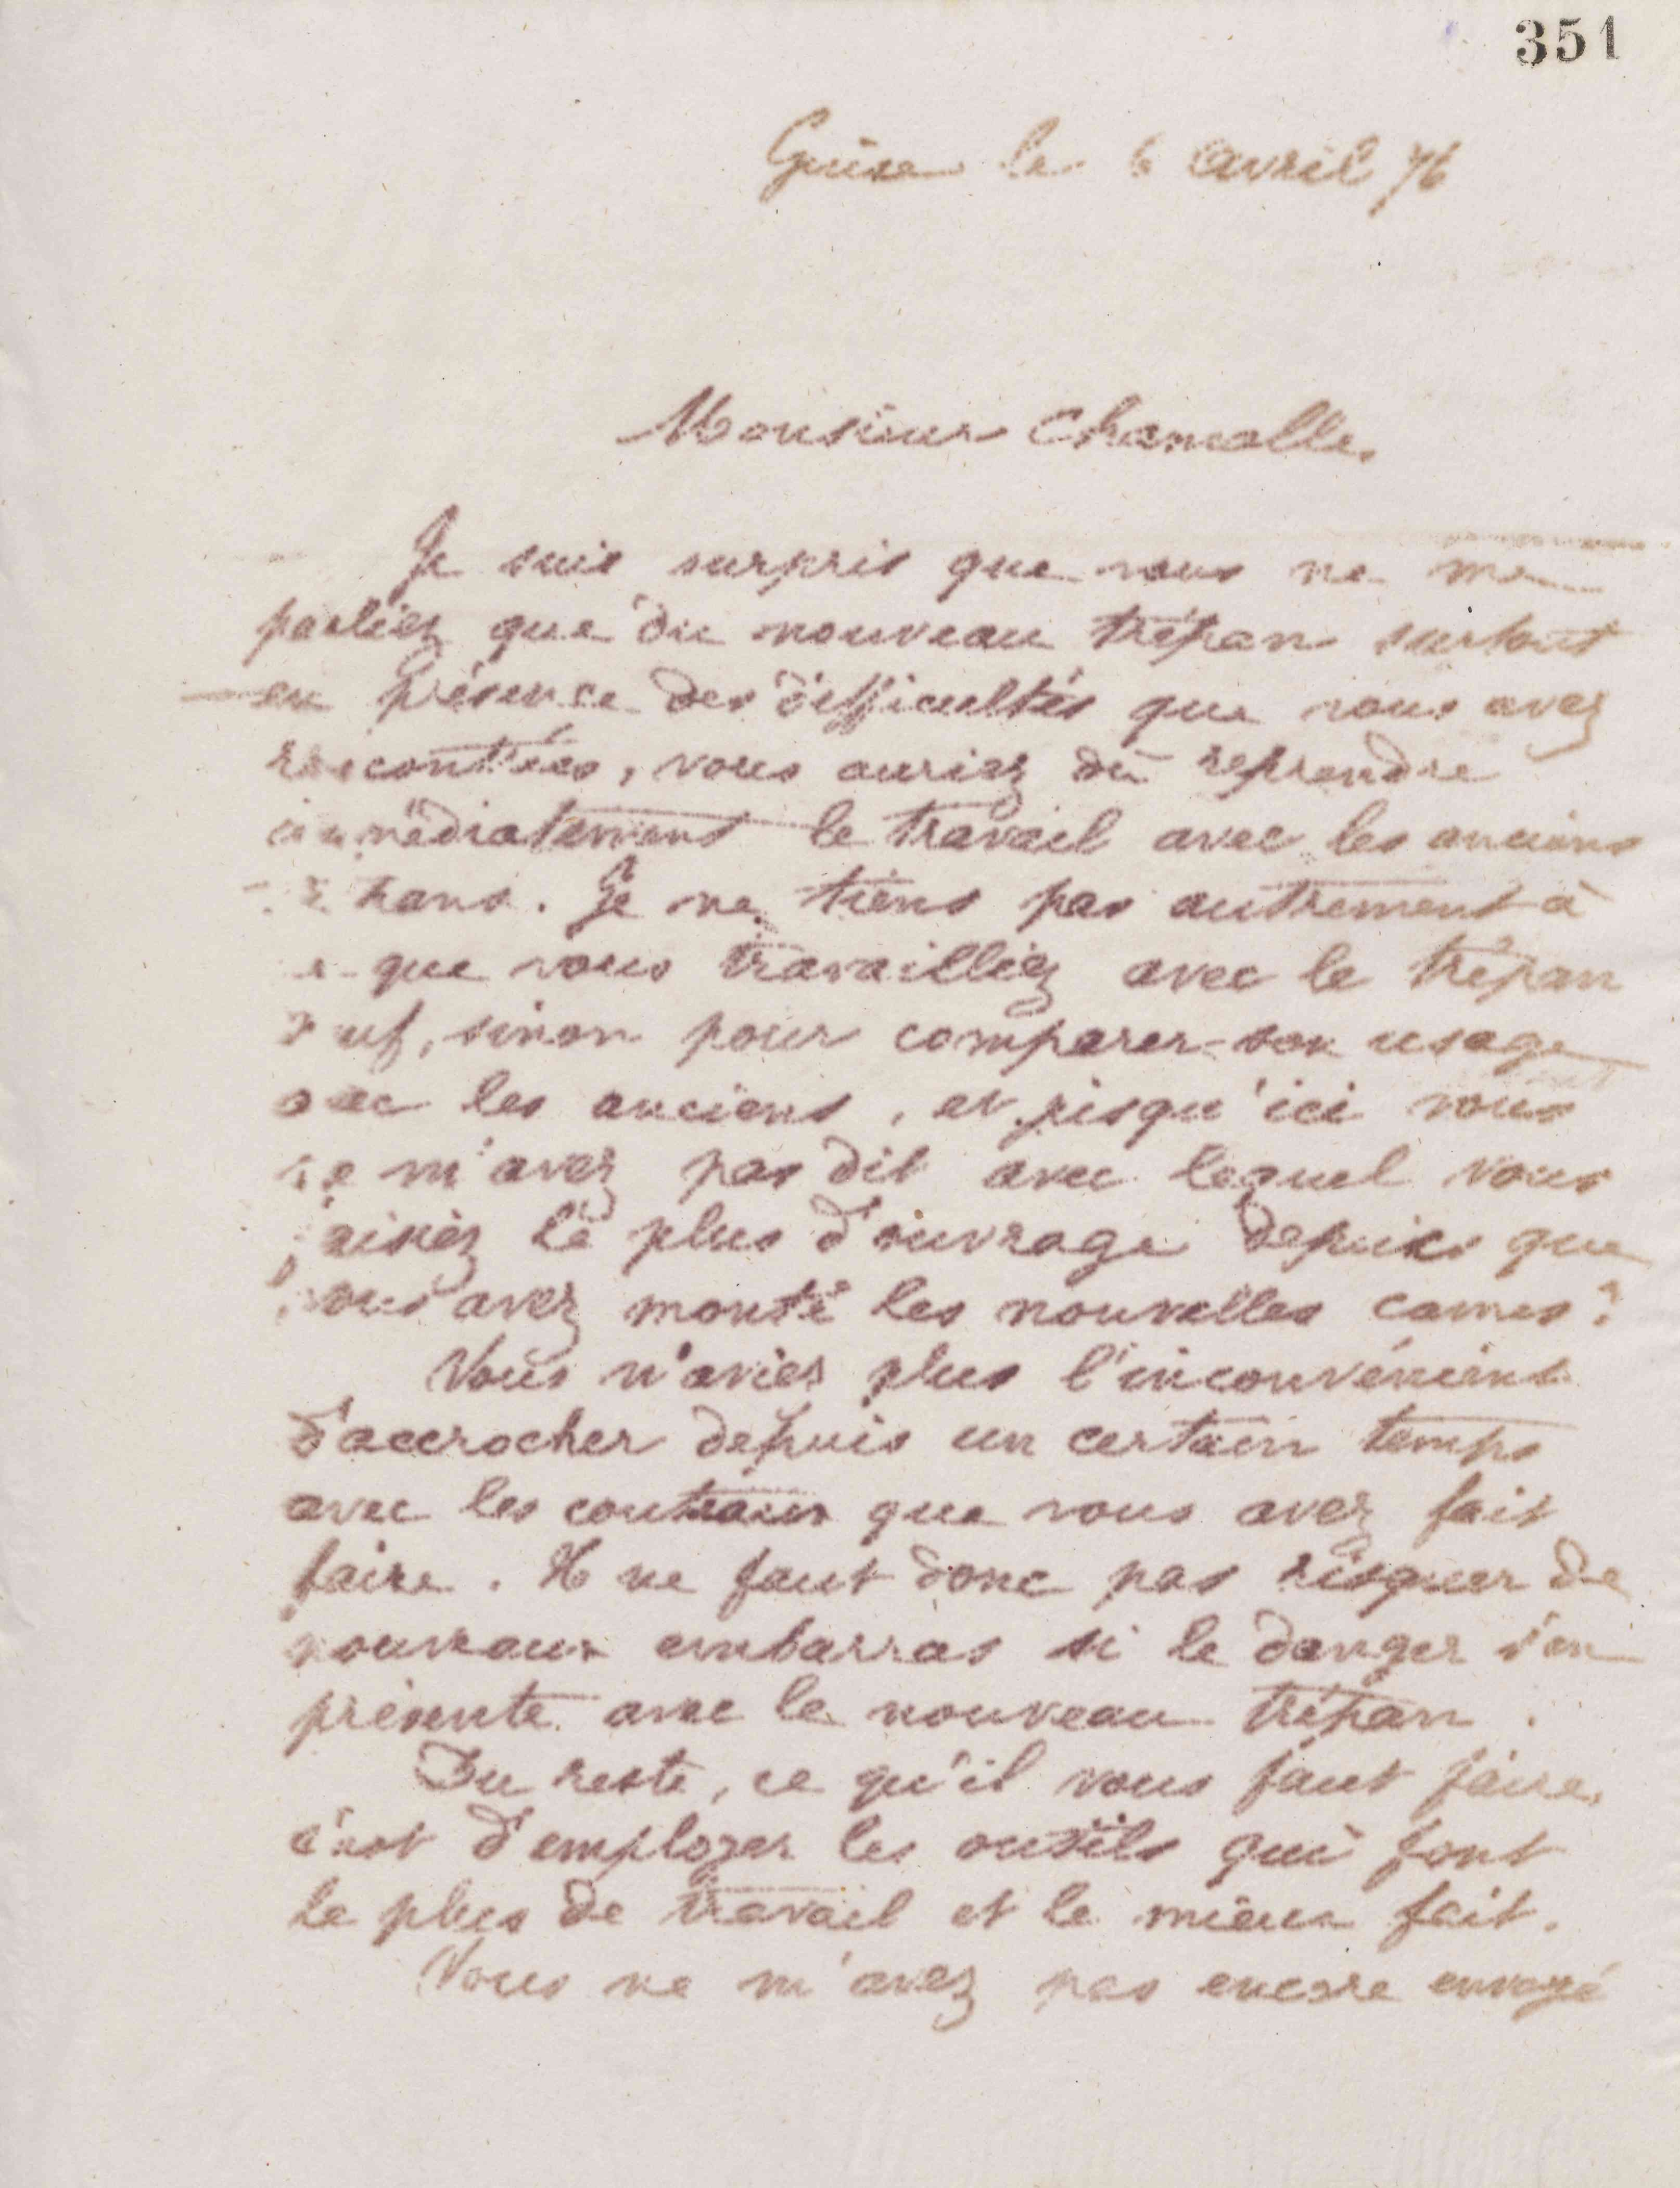 351
Guise le 6 avril 76
Monsieur Chamolle
Je suis surpris que vous ne me
parliez que du nouveau trépan surtout
en présence des difficultés que vous avez
rencontrées, vous auriez dû reprendre
immédiatement le travail avec les anciens
trépans. Je ne tiens pas autrement à
ce que vous travailliez avec le trépan
neuf, sinon pour comparer son usage
avec les anciens, et jusqu'ici vous
ne m'avez pas dit avec lequel vous
faisiez le plus d'ouvrage depuis que
vous avez monté les nouvelles cames?
Vous n'aviez plus l'inconvénient
d'accrocher depuis un certain temps
avec les couteaux que vous avez fait
faire. Il ne faut donc pas risquer de
nouveaux embarras si le danger s'en
présente avec le nouveau trépan.
Du reste, ce qu'il vous faut faire,
c'est d'employer les outils qui font
le plus de travail et le mieux fait.
Vous ne m'avez pas encore envoyé